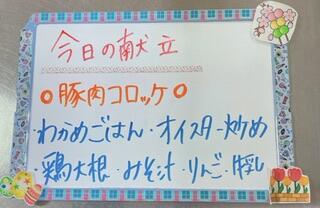 今日の献立
○豚肉コロッケ○
・わかめごはん・オイスター炒め
・鶏大根・みそ汁・りんご・牛乳